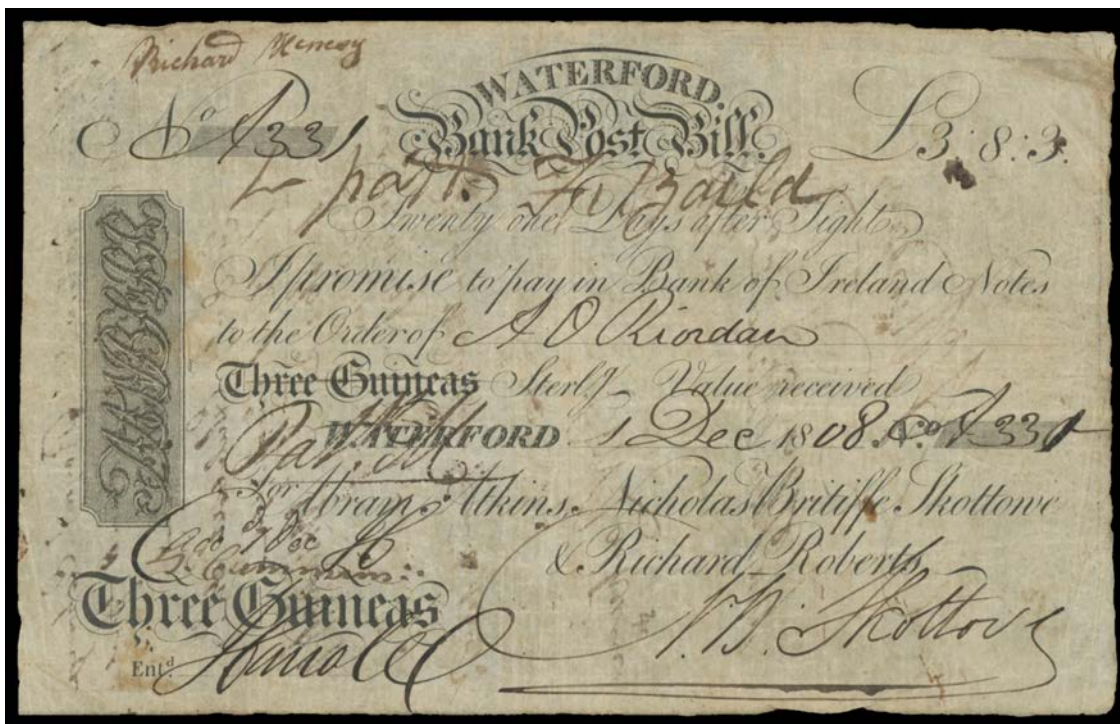 Richard
WATERFORD.
No A331 Bank Post Bill. £3:8:3.
Twenty one Days after Sight
I promise to pay in Bank of Ireland Notes
to the Order of A O Riordan
Three Guineas Sterlg. Value received
WATERFORD 1 Dec 1808. No A331
For Abram Atkins, Nicholas Britiffe Skottowe
& Richard Roberts
Three Guineas
N. B. Skottowe
Entd.